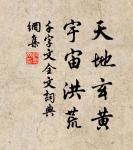 天地玄黃
宇宙洪荒
千字文全文詞典
網集